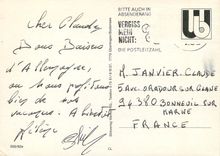 Cher Claude
Bons Baisers
d'Allemagne,
ou nous profitons
bien de nos
vacances. A bientôt
BITTE AUCH IM
ABSENDERANG
VERGISS
MEIN
NICHT:
DIE POSTLEITZAHL
M. JANVIER. CLAUDE
5 AVE ORADOUR SUR GLANE
94380 BONNEUIL SUR
MARNE
FRANCE